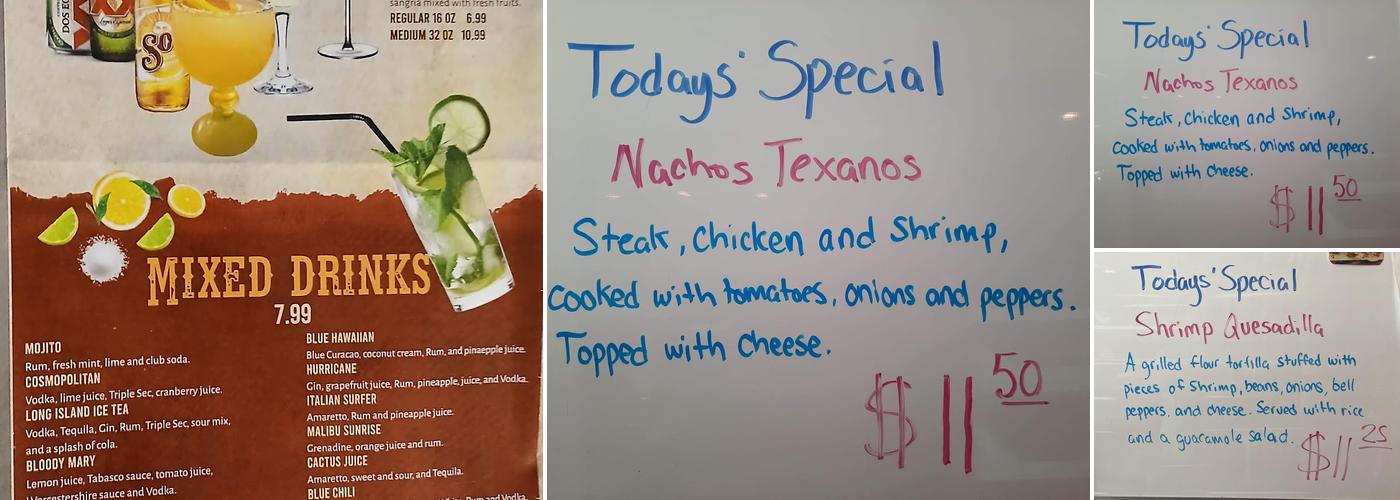 sangria mixed with fresh fruits.
REGULAR 16 OZ 6.99
MEDIUM 32 OZ 10.99
DOS EQ
XX
SO
MIXED DRINKS
7.99
MOJITO
Rum, fresh mint, lime and club soda.
COSMOPOLITAN
Vodka, lime juice, Triple Sec, cranberry juice.
LONG ISLAND ICE TEA
Vodka, Tequila, Gin, Rum, Triple Sec, sour mix,
and a splash of cola.
BLOODY MARY
Lemon juice, Tabasco sauce, tomato juice,
Worcestershire sauce and Vodka.
BLUE HAWAIIAN
Blue Curacao, coconut cream, Rum, and pinaepple juice.
HURRICANE
Gin, grapefruit juice, Rum, pineapple, juice, and Vodka.
ITALIAN SURFER
Amaretto, Rum and pineapple juice.
MALIBU SUNRISE
Grenadine, orange juice and rum.
CACTUS JUICE
Amaretto, sweet and sour, and Tequila.
BLUE CHILI
Rum and Vodka.
Todays' Special
Nachos Texanos
Steak, chicken and Shrimp,
cooked with tomatoes, onions and peppers.
Topped with cheese.
$11 50
Todays' Special
Nachos Texanos
Steak, chicken and Shrimp,
cooked with tomatoes, onions and peppers.
Topped with cheese.
$11 50
Todays' Special
Shrimp Quesadilla
A grilled flour tortilla stuffed with
pieces of shrimp, beans, onions, bell
peppers, and cheese. Served with rice
and a guacamole salad.
$11 25